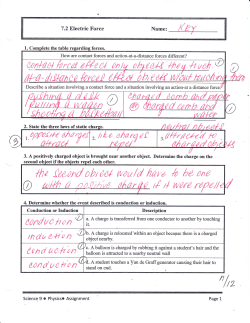 7.2 Electric Force Name: KEY
1. Complete the table regarding forces.
How are contact forces and action-at-a-distance forces different?
contact force effect only objects they touch
at-a-distance forces effect objects w/out touching them
Describe a situation involving a contact force and a situation involving an action-at-a-distance force.
pushing a desk charged comb and paper
pulling a wagon charged comb and
shooting a basketball water
2. State the three laws of static charge.
neutral objects
opposite charges like charges attracted to
attract repel charged objects
3. A positively charged object is brought near another object. Determine the charge on the
second object if the objects repel each other.
the second object would have to be one
with a positive charge if it were repelled
4. Determine whether the event described is conduction or induction.
Conduction or Induction Description
conduction a. A charge is transferred from one conductor to another by touching
it.
induction b. A charge is induced within an object because there is a charged
object nearby.
induction c. A balloon is charged by rubbing it against a student's hair and the
balloon is attracted to a nearby neutral wall.
conduction d. A student touches a Van de Graff generator causing their hair to
stand on end.
/12
Science 9 Physics Assignment Page 1